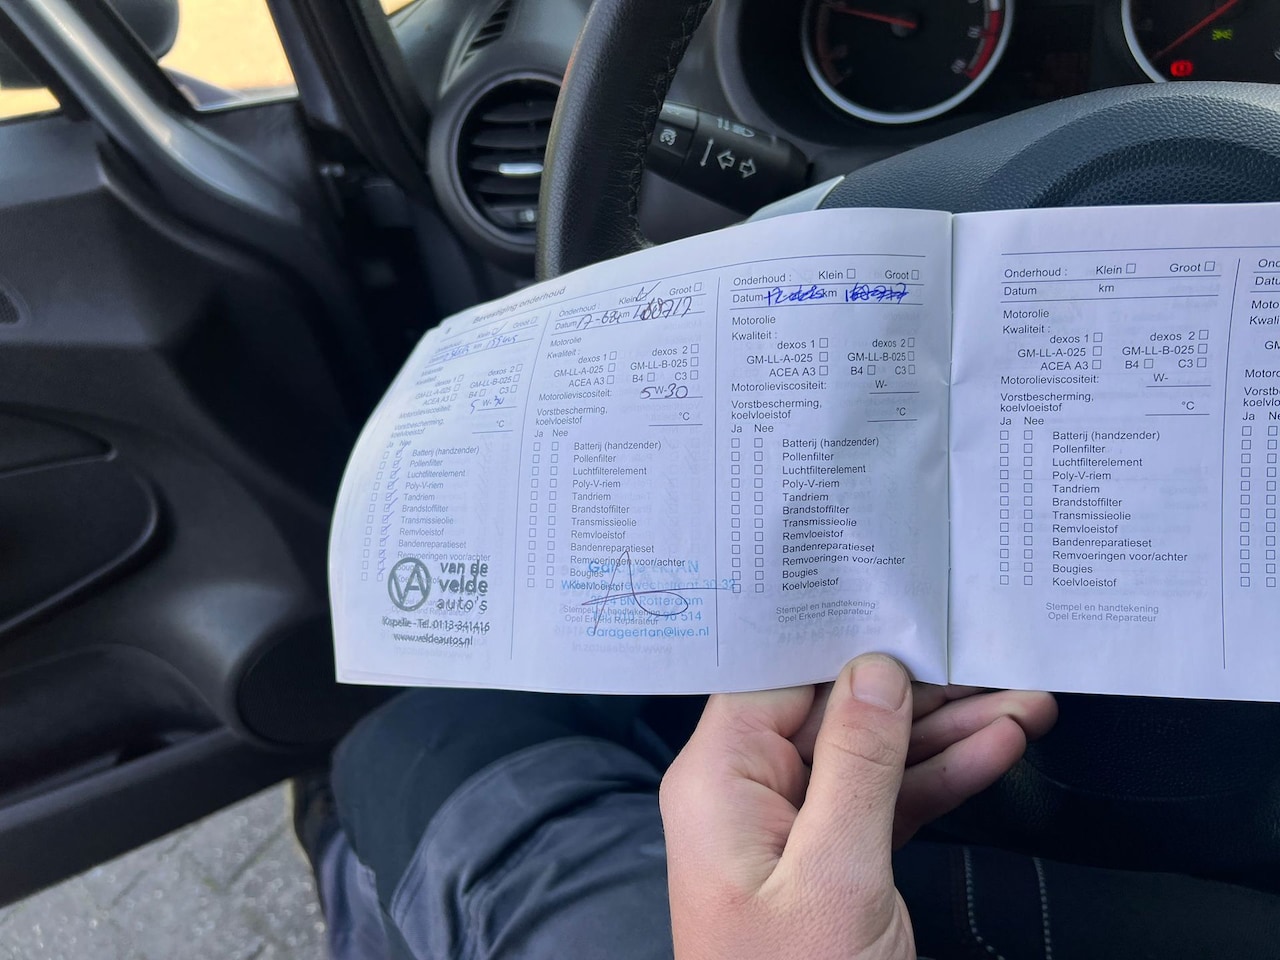 Bevestiging onderhoud
Klein Groot
km
Kwaliteit :
dexos 1 dexos 2
GM-LL-A-025 GM-LL-B-025
ACEA A3 B4 C3
Motorolieviscositeit: 5 W-30
Vorstbescherming,
koelvloeistof °C
Ja Nee
Batterij (handzender)
Pollenfilter
Luchtfilterelement
Poly-V-riem
Tandriem
Brandstoffilter
Transmissieolie
Remvloeistof
Bandenreparatieset
Remvoeringen voor/achter
van de
velde
auto's
Kapelle - Tel. 0113-341416
www.veldeautos.nl
Onderhoud : Klein Groot
Datum km
Motorolie
Kwaliteit :
dexos 1 dexos 2
GM-LL-A-025 GM-LL-B-025
ACEA A3 B4 C3
Motorolieviscositeit: 5W-30
Vorstbescherming,
koelvloeistof °C
Ja Nee
Batterij (handzender)
Pollenfilter
Luchtfilterelement
Poly-V-riem
Tandriem
Brandstoffilter
Transmissieolie
Remvloeistof
Bandenreparatieset
Remvoeringen voor/achter
Bougies
Koelvloeistof
BN Rotterdam
514
Stempel en handtekening
Opel Erkend Reparateur
Garageertan@live.nl
Onderhoud : Klein Groot
Datum km
Motorolie
Kwaliteit :
dexos 1 dexos 2
GM-LL-A-025 GM-LL-B-025
ACEA A3 B4 C3
Motorolieviscositeit:
W-
Vorstbescherming,
koelvloeistof °C
Ja Nee
Batterij (handzender)
Pollenfilter
Luchtfilterelement
Poly-V-riem
Tandriem
Brandstoffilter
Transmissieolie
Remvloeistof
Bandenreparatieset
Remvoeringen voor/achter
Bougies
Koelvloeistof
Stempel en handtekening
Opel Erkend Reparateur
Onderhoud : Klein Groot
Datum km
Motorolie
Kwaliteit :
dexos 1 dexos 2
GM-LL-A-025 GM-LL-B-025
ACEA A3 B4 C3
Motorolieviscositeit:
W-
Vorstbescherming,
koelvloeistof °C
Ja Nee
Batterij (handzender)
Pollenfilter
Luchtfilterelement
Poly-V-riem
Tandriem
Brandstoffilter
Transmissieolie
Remvloeistof
Bandenreparatieset
Remvoeringen voor/achter
Bougies
Koelvloeistof
Stempel en handtekening
Opel Erkend Reparateur